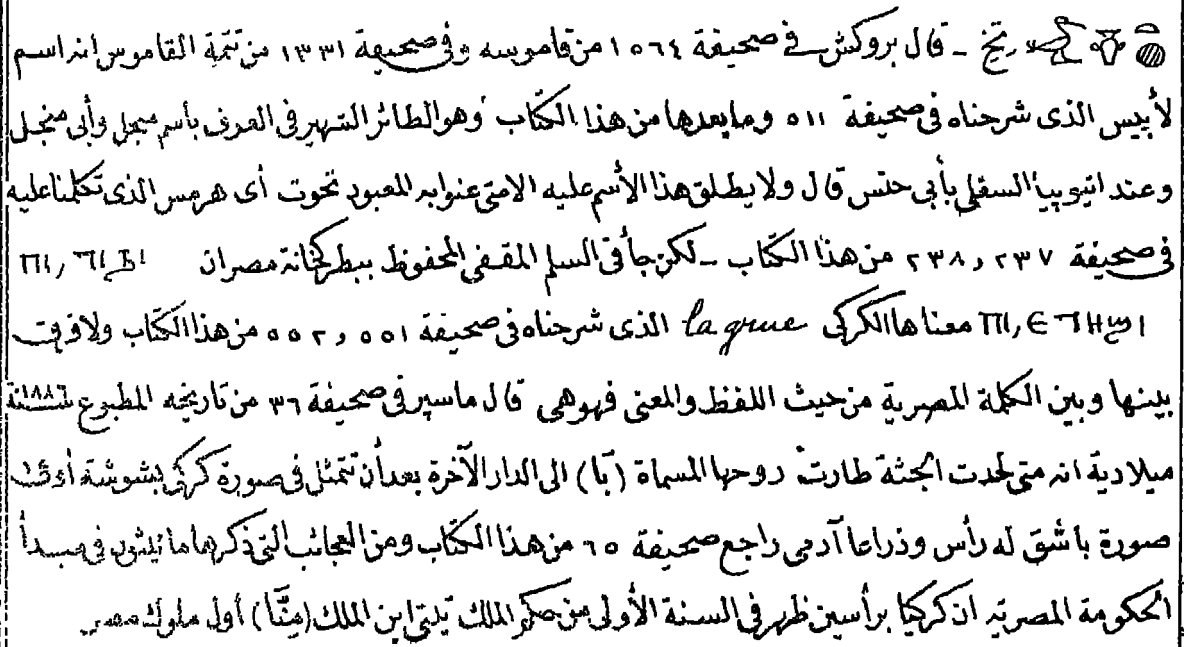 تخ - قال بروكش فى صحيفة ١٥٦٤ من قاموسه وفى صحيفة ١٣٣١ من تتمة القاموس انه اسم
لأبيس الذى شرحناه فى صحيفة ٥١١ ومابعدها من هذا الكتاب وهو الطائر الشهير فى العرف بأسم منجل وأبى منجل
وعند اتيوپيا السفلى بأبى حنس قال ولا يطلق هذا الأسم عليه الا متى عنوا به المعبود تحوت أى هرمس الذى تكلمنا عليه
فى صحيفة ٢٣٧ و ٢٣٨ من هذا الكتاب - لكن جأ فى السلم المقفى المحفوظ ببطركخانة مصر ان
معناها الكركى la grue الذى شرحناه فى صحيفة ٥٥١ و ٥٥٢ من هذا الكتاب ولا فرق
بينها وبين الكلمة المصرية من حيث اللفظ والمعنى فهى هى قال ماسپرو فى صحيفة ٣٦ من تاريخه المطبوع سنة
ميلادية انه متى لحدت الجثة طارت روحها المسماة (بَا) الى الدار الآخرة بعد أن تتمثل فى صورة كركى بشوشة أو فى
صورة باشق له رأس وذراعا آدمى راجع صحيفة ٦٥ من هذا الكتاب ومن العجائب التى ذكرها مانيثون فى مبدأ
الحكومة المصرية ان كركيا برأسين ظهر فى السنة الأولى من حكم الملك تيتى ابن الملك (مِنَّا) أول ملوك مصر